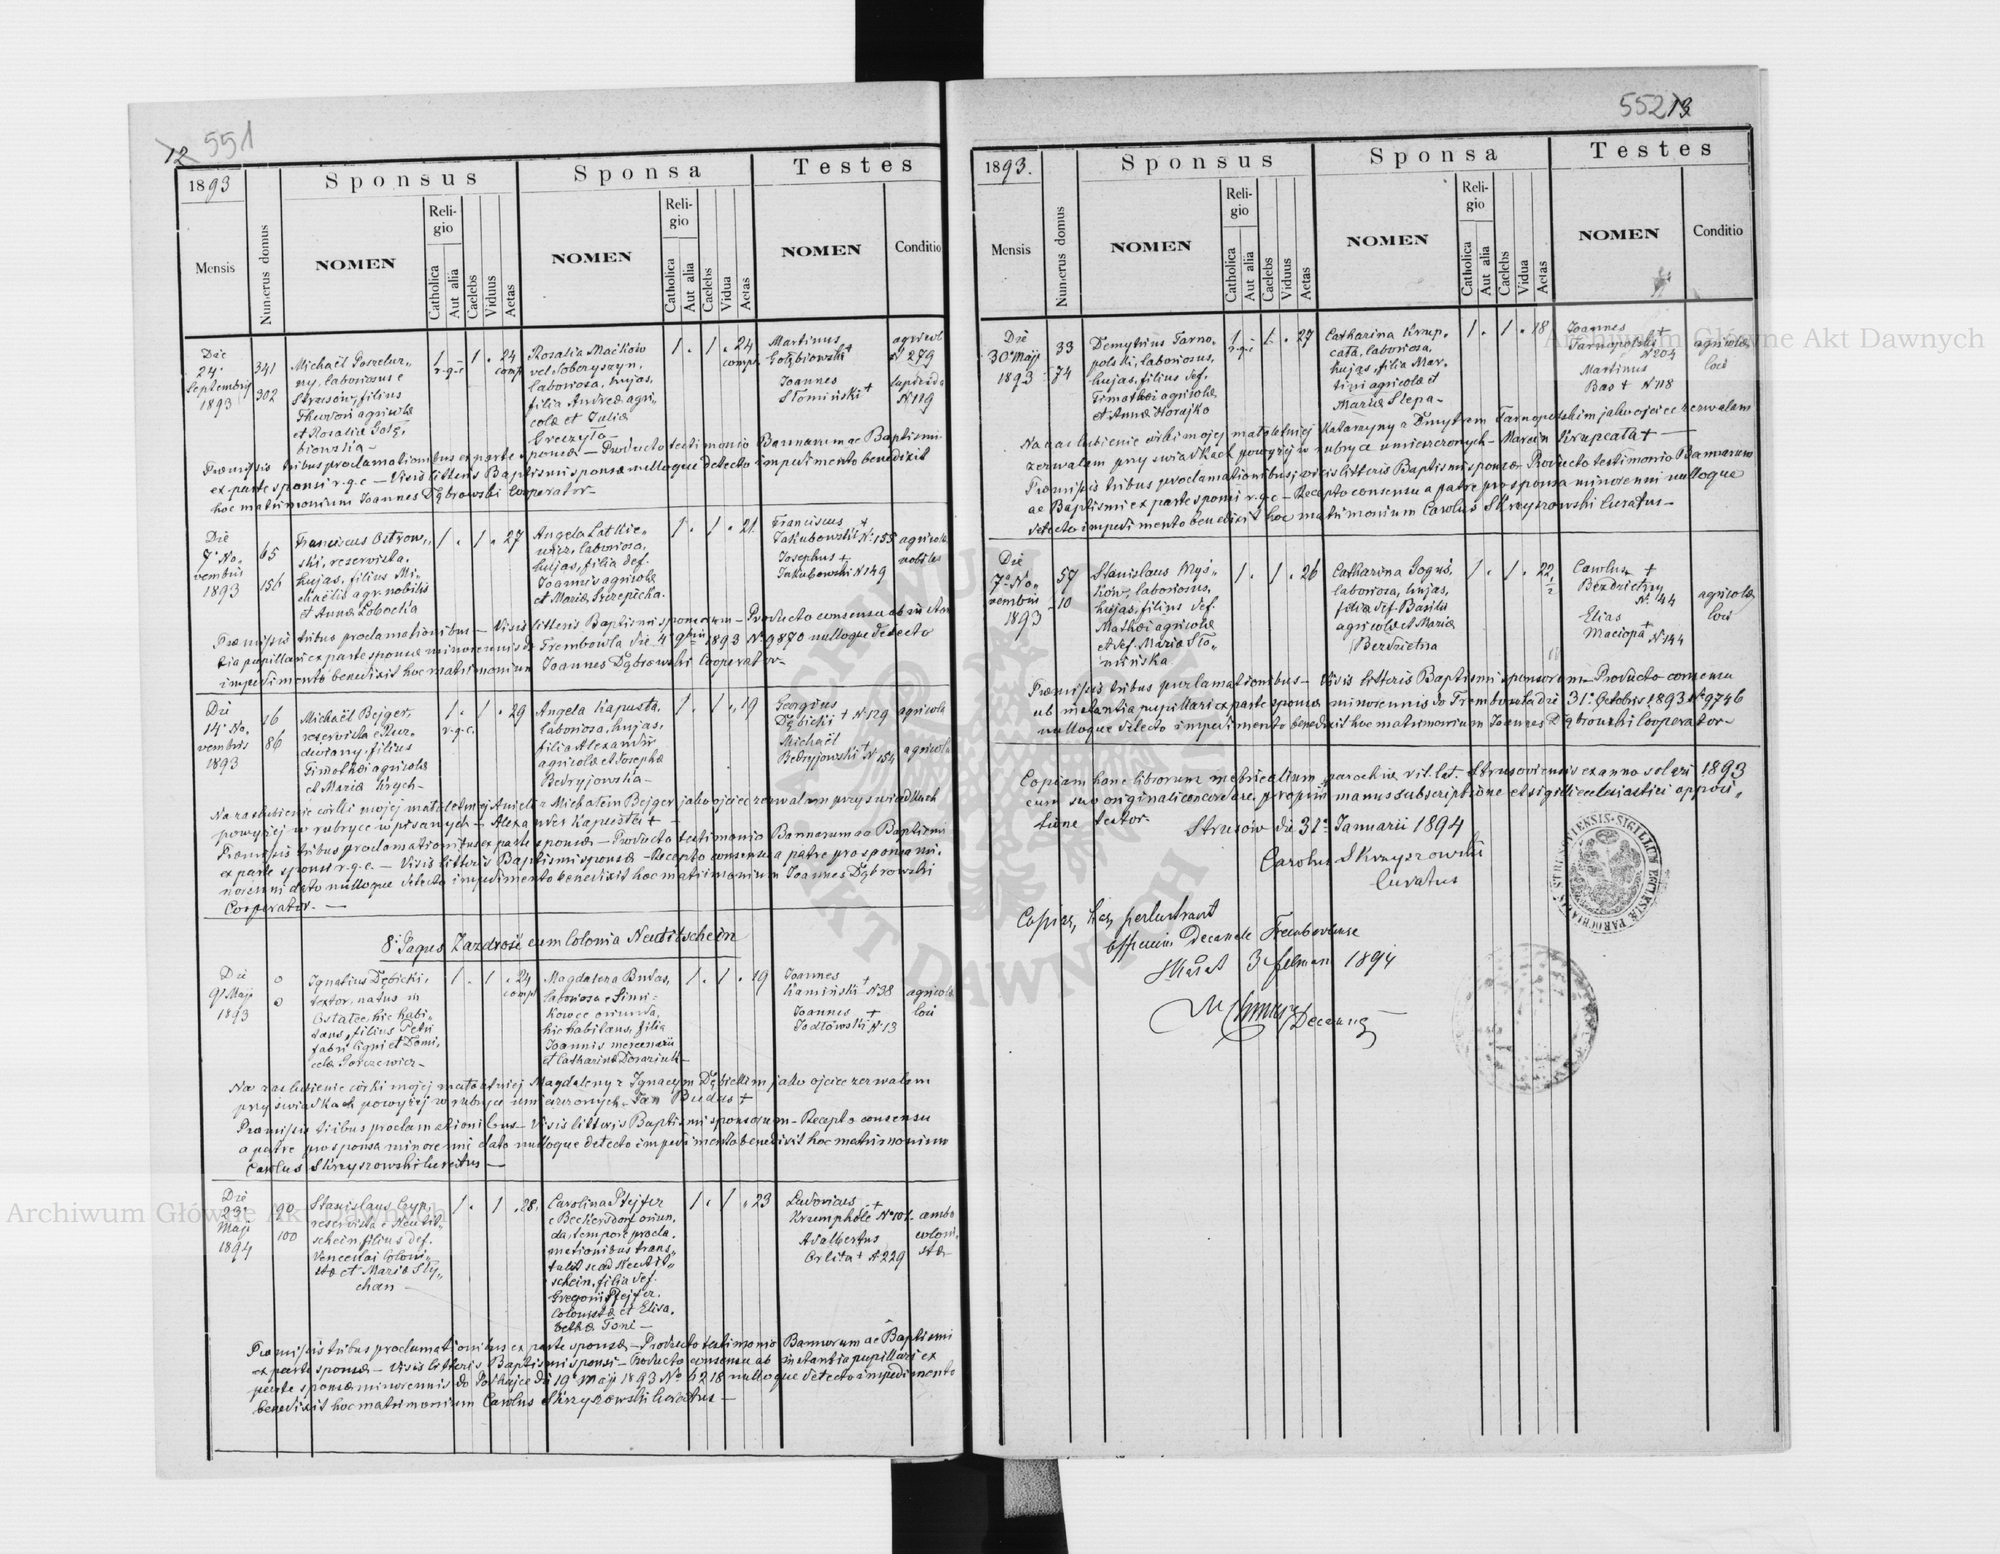 12 551
1893
Sponsus
Sponsa
Testes
Mensis
Numerus domus
NOMEN
Religio
Catholica
Aut alia
Caelebs
Viduus
Aetas
NOMEN
Religio
Catholica
Aut alia
Caelebs
Vidua
Aetas
NOMEN
Conditio
Die
24
Septembris
1893
341
302
Michaël
ny, laboriosus e
Strusów, filius
Theodori agricolæ
et Rosaliæ Golę-
biowska
1 r.g.c. 1 . 24 compl
Rosalia Maćków
vel Soberyszyn,
laboriosa, hujas,
filia Andreæ agri-
colæ et Juliæ
Greczyło
1 . 1 . 24 compl.
Martinus
Gołębiowski +
Joannes
Słomiński +
agricola
N 279
N 119
Præmissis tribus proclamationibus ex parte sponsæ – Producto testimonio Bannorum ac Baptismi
ex parte sponsi r.g.c. – Visis litteris Baptismi sponsæ nulloque detecto impedimento benedixit
hoc matrimonium Joannes Dąbrowski Cooperator –
Die
7a No-
vembris
1893
65
156
Franciscus Ostrow-
ski, reservista,
hujas, filius Mi-
chaëlis agr. nobilis
et Annæ Łobocka
1 . 1 . 27
Angela Latkie-
wicz, laboriosa,
hujas, filia def.
Joannis agricolæ
et Mariæ Szczepicha.
1 . 1 . 21
Franciscus +
Jakubowski N. 155
Josephus +
Jakubowski N 149
agricolæ
nobiles
Præmissis tribus proclamationibus – Visis litteris Baptismi sponsorum – Producto consensu ab instan-
tia pupillari ex parte sponsæ minorennis do Trembowla die 4 9bris 1893 N. 9870 nulloque detecto
impedimento benedixit hoc matrimonium Joannes Dąbrowski Cooperator –
Die
14a No-
vembris
1893
16
86
Michaël Bejger,
reservista e Bur-
dwiany, filius
Timothæi agricolæ
et Maria Krych –
1 . r.g.c. 1 . 29
Angela Kapusta,
laboriosa, hujas,
filia Alexandri
agricolæ et Josephæ
Bedryjowska –
1 . 1 . 19
Georgius
Dębicki + N. 129
Michaël
Bedryjowski + N. 154
agricola
agricola
Na zaślubienie córki mojej małoletniej Anieli z Michałem Bejger jako ojciec zezwalam przy świadkach
powyżej w rubryce wpisanych – Alexander Kapusta +
Præmissis tribus proclamationibus ex parte sponsæ – Producto testimonio Bannorum ac Baptismi
ex parte sponsi r.g.c. – Visis litteris Baptismi sponsæ – Recepto consensu a patre pro sponsa mi-
norenni dato nulloque detecto impedimento benedixit hoc matrimonium Joannes Dąbrowski
Cooperator. –
8. Pagus Zazdrość cum Colonia Neutitschein
Die
9. Maji
1893
0
0
Ignatius Dębicki,
textor, natus in
Ostatce, hic habi-
tans, filius Petri
fabri ligni et Domi-
celæ Gorczewicz –
1 . 1 . 24 compl
Magdalena Budas,
laboriosa e Simi-
kowce oriunda,
hic habitans, filia
Joannis mercenarii
et Catharinæ Doraziuk –
1 . 1 . 19
Joannes +
Kamiński N 38
Joannes +
Jodłowski N. 13
agricolæ
loci
Na zaślubienie córki mojej małoletniej Magdaleny z Ignacym Dębickim jako ojciec zezwalam
przy świadkach powyżej w rubryce umieszczonych – Jan Budas +
Præmissis tribus proclamationibus – Visis litteris Baptismi sponsorum – Recepto consensu
a patre pro sponsa minorenni dato nulloque detecto impedimento benedixit hoc matrimonium
Carolus Skrzyszowski Curatus –
Die
23.
Maji
1894
90
100
Stanislaus Cyp,
reservista e Neutit-
schein filius def.
Venceslai Coloni-
stæ et Mariæ Sty-
chan –
1 . 1 . 28.
Carolina Pfejfer
e Beckersdorf oriun-
da, tempore procla-
mationibus trans-
tulit se ad Neutit-
schein, filia def.
Gregorii Pfejfer,
Colonistæ et Elisa-
bethæ Toni –
1 . 1 . 23
Ludovicus +
Krumphole N. 101.
Adalbertus
Orlita + N. 229
ambo
coloni-
stæ
Præmissis tribus proclamationibus ex parte sponsæ – Producto testimonio Bannorum ac Baptismi
ex parte sponsæ – Visis litteris Baptismi sponsi – Producto consensu ab instantia pupillari ex
parte sponsæ minorennis do Podhajce die 19. Maji 1893 No 6218 nulloque detecto impedimento
benedixit hoc matrimonium Carolus Skrzyszowski Curatus –
552 13
1893.
Sponsus
Sponsa
Testes
Mensis
Numerus domus
NOMEN
Religio
Catholica
Aut alia
Caelebs
Viduus
Aetas
NOMEN
Religio
Catholica
Aut alia
Caelebs
Vidua
Aetas
NOMEN
Conditio
Die
30a Maji
1893
33
74
Demytrius Tarno-
polski, laboriosus,
hujas, filius def.
Timothei agricolæ
et Annæ Horajko
1 r.g.c. 1 . 27
Catharina Krup-
cała, laboriosa,
hujas, filia Mar-
tini agricolæ et
Mariæ Slepa –
1 . 1 . 18
Joannes +
Tarnopolski
N 204
Martinus
Bas + N 118
agricolæ
loci
Na zaślubienie córki mojej małoletniej Katarzyny z Dmytrem Tarnopolskim jako ojciec zezwalam
zezwalam przy świadkach powyżej w rubryce umieszczonych – Marcin Krupcała +
Præmissis tribus proclamationibus, visis litteris Baptismi sponsæ – Producto testimonio Bannorum
ac Baptismi ex parte sponsi r.g.c – Recepto consensu a patre pro sponsa minorenni nulloque
detecto impedimento benedixit hoc matrimonium Carolus Skrzyszowski Curatus –
Die
7a No-
vembris
1893
57
10
Stanislaus Myś-
ków, laboriosus,
hujas, filius def.
Mathæi agricolæ
et def. Mariæ Sło-
mińska
1 . 1 . 26
Catharina Goguś,
laboriosa, hujas,
filia def. Basilii
agricolæ et Mariæ
Berdzietna
1 . 1 . 22 1/2
Carolus +
Berdzietny
N. 44
Elias +
Maciopa N 144
agricolæ
loci
Præmissis tribus porlamationibus – Visis litteris Baptismi sponsorum – Producto consensu
ab instantia pupillari ex parte sponsæ minorennis do Trembowla die 31. Octobris 1893 No 9746
nulloque detecto impedimento benedixit hoc matrimonium Joannes Dąbrowski Cooperator –
Copiam hanc librorum metricalium parochiæ rit. lat. Strusoviensis ex anno solari 1893
cum suo originali concordare propriæ manus subscriptione et sigilli ecclesiastici apposi-
tione testor.
Strusów die 31a Januarii 1894
Carolus Skrzyszowski
Curatus
Copias has perlustravit
Officium Decanale Trembovlense
3 1894
Decanus
Archiwum Główne Akt Dawnych
Archiwum Główne Akt Dawnych
ARCHIWUM GŁÓWNE AKT DAWNYCH